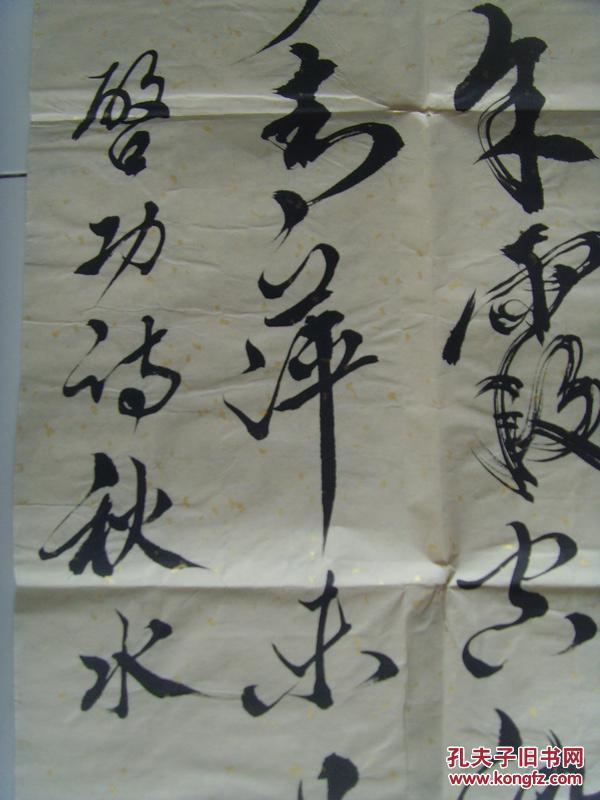 余霞空
萍未
啓功诗秋水
孔夫子旧书网
www.kongfz.com